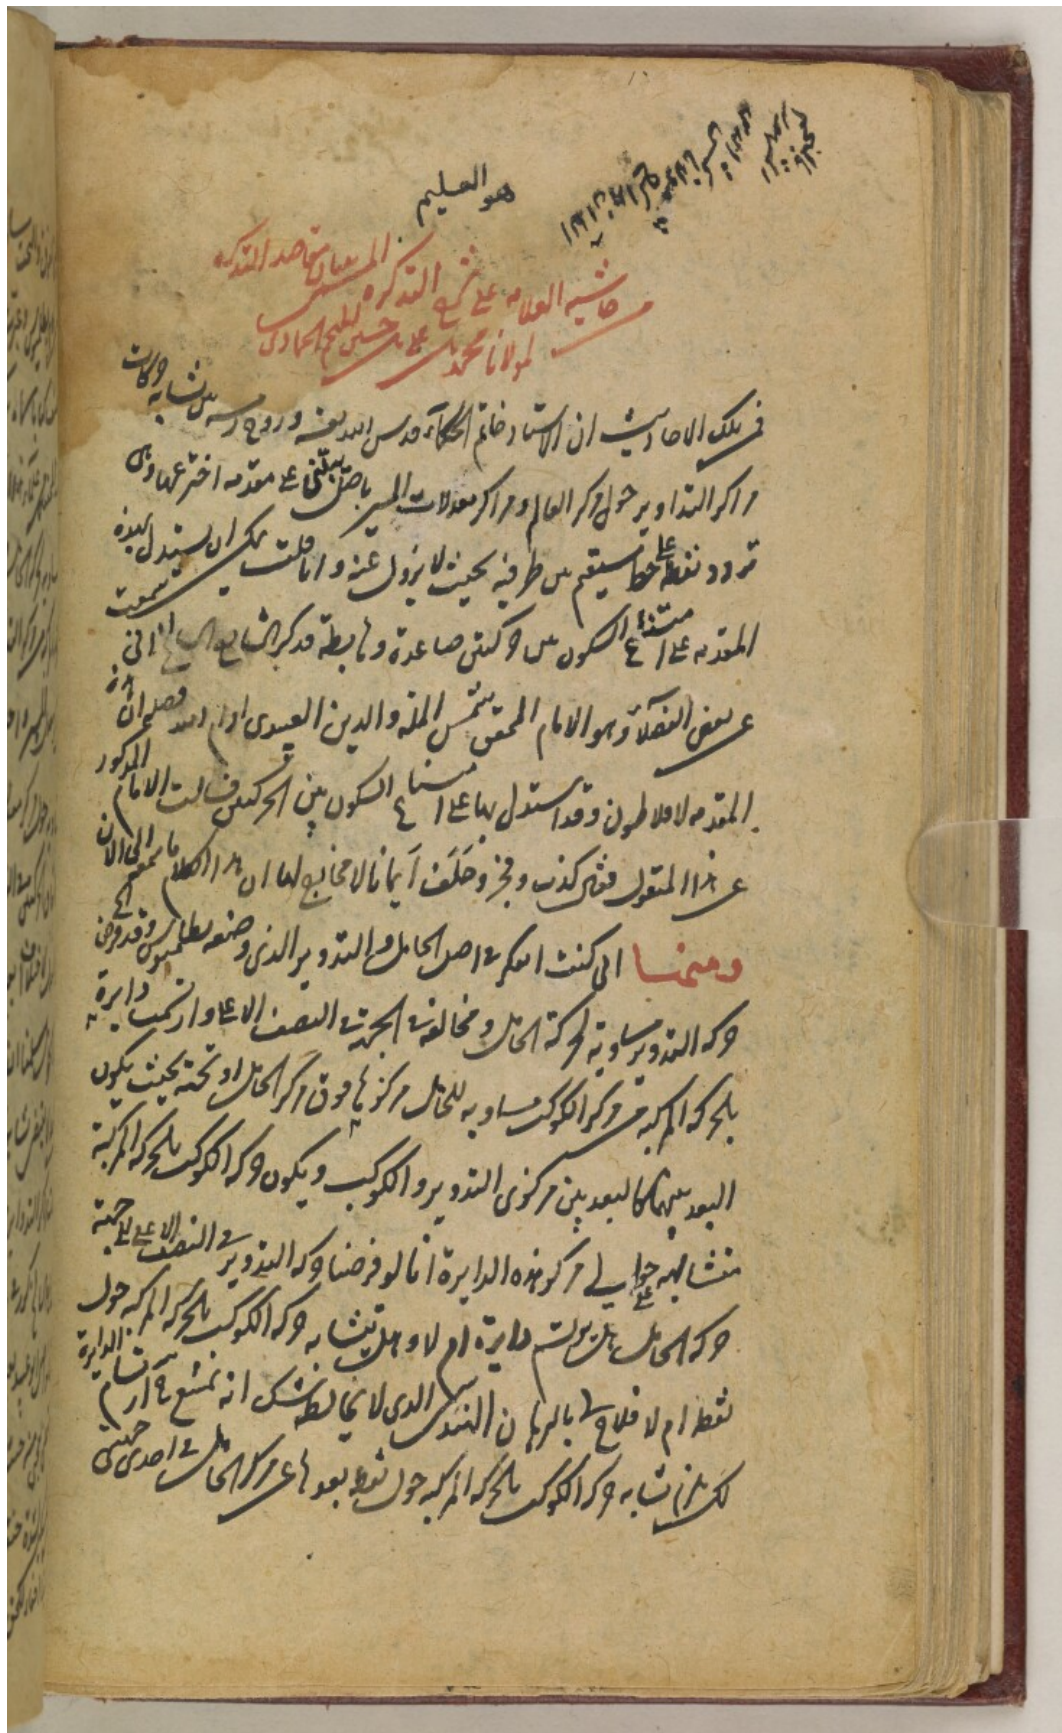 هو العليم
حاشيه العلامه على شرح التذكره المسمى ببيان مقاصد التذكره
لمولانا محمد بن علي بن حسين المنجم الحمادي
فمن تلك الاحاديث ان الاستاد خاتم الحكماء قدس الله نفسه وروح رمسه بين تشابه حركات
مراكز التداوير حول مركز العالم ومراكز معدلات المسير باصل يبتني على مقدمه اخترعها وهى
تردد نقطة على خط مستقيم بين طرفيه بحيث لا يزول عنه وانا قلت يمكن ان يستدل بهذه
المقدمه على امتناع السكون بين حركتين صاعدة وهابطة فذكر الشارح انى سمعت
عن بعض الفضلاء وهو الامام المحقق شمس الملة والدين العبيدى ادام الله فضله ان هذه
المقدمه لافلاطون وقد استدل بها على امتناع السكون بين الحركتين فسالت الامام المذكور
عن هذا المنقول فقال كذب وفجر وحلف أيمانا لا مخارج لها ان هذا الكلام ما سمعه الى الان
ومنها انى كنت افكر فى اصل الحامل والتدوير الذى وضعه بطلميوس وقد فرض
حركه التدوير مساوية لحركة الحامل ومخالفة فى الجهة فى النصف الاعلى وارتسمت دايرة
بالحركه المركبه من مركز الكوكب مساويه للحامل مركزها فوق مركز الحامل او تحته بحيث يكون
البعد بينهما كالبعد بين مركزى التدوير والكوكب ويكون حركه الكوكب بالحركه المركبة
متشابهه حوالى مركز هذه الدايرة انا لو فرضنا حركه التدوير فى النصف الاعلى على جهة
حركه الحامل هل يرتسم دايرة ام لا وهل يتشابه حركه الكوكب بالحركه المركبه حول
نقطه ام لا فلاح لى بالبرهان الهندسى الذى لا يخالطه شك انه يمتنع ارتسام الدايرة
لكن يلزم تشابه حركه الكوكب بالحركه المركبه حول نقطه بعدها عن مركز الحامل فى احدى جهتى